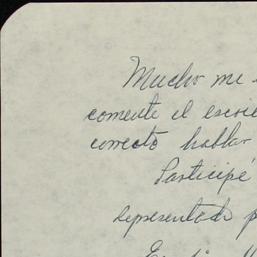 Mucho me
comente el escri
correcto hablar
Participé
representado p